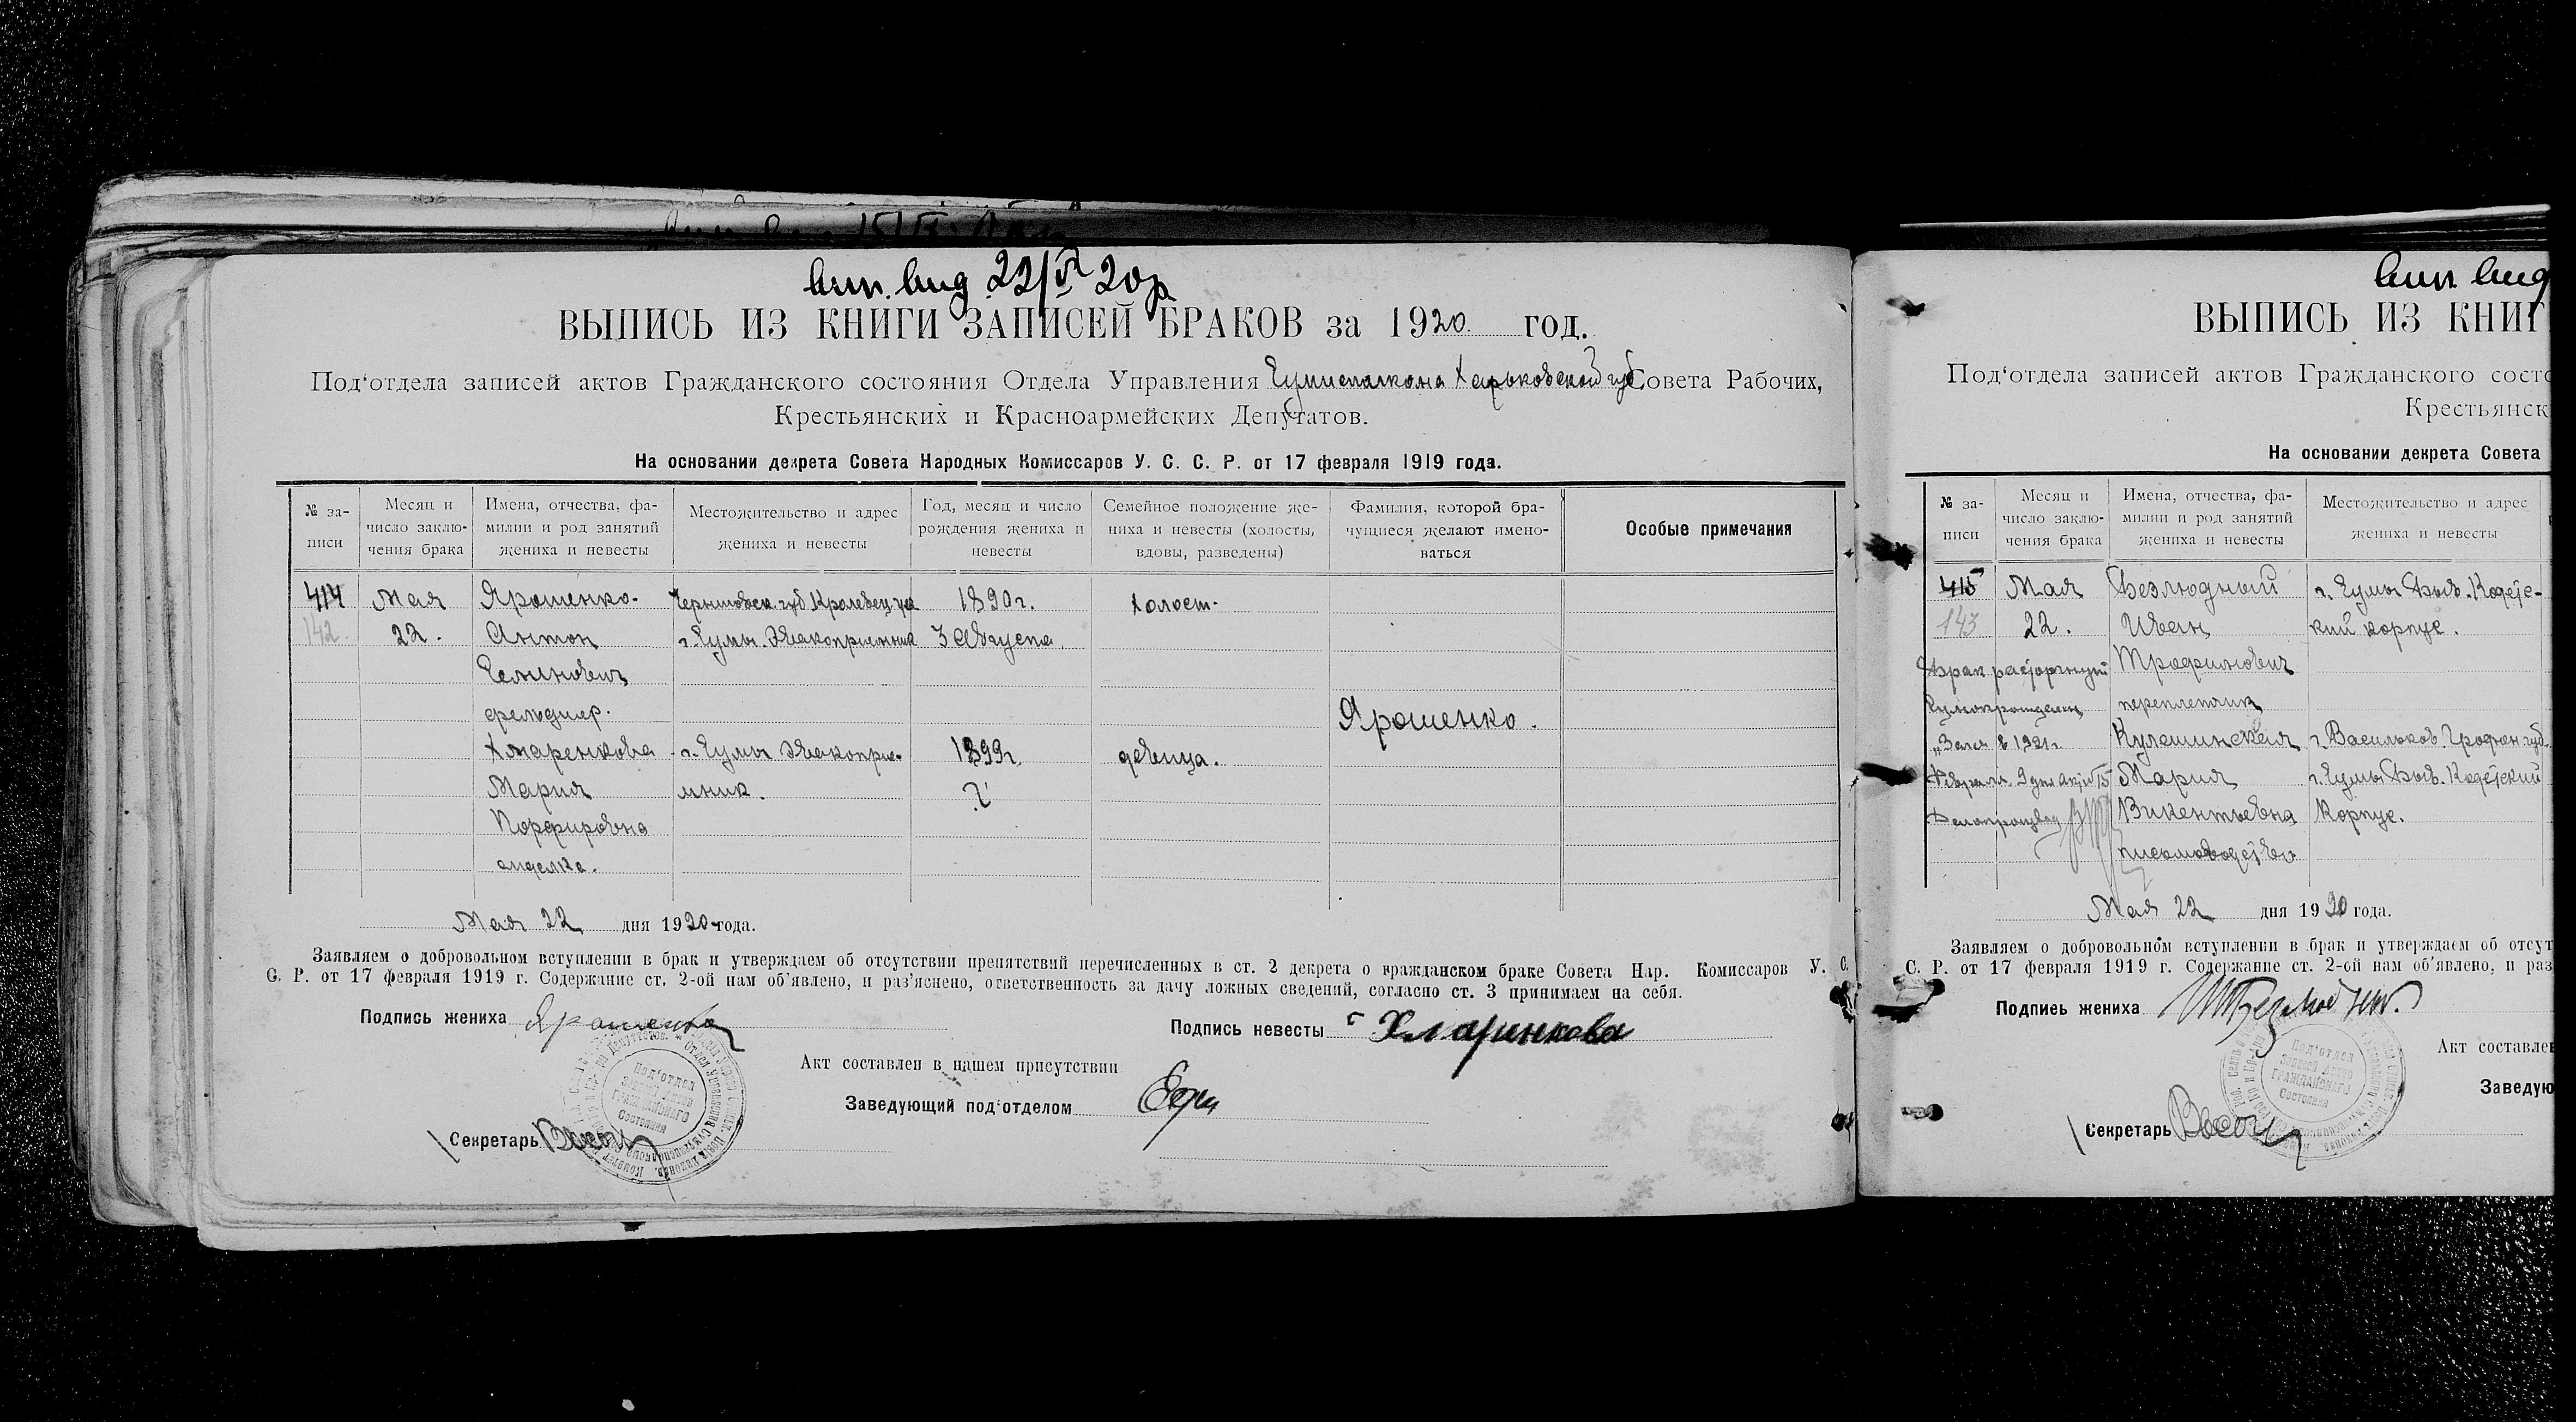 вип. вид. 22/V 20р
ВЫПИСЬ ИЗ КНИГИ ЗАПИСЕЙ БРАКОВ за 1920 год.
Под‘отдела записей актов Гражданского состояния Отдела Управления Сумисполкома Харьковской губ. Совета Рабочих,
Крестьянских и Красноармейских Депутатов.
На основании декрета Совета Народных Комиссаров У. С. С. Р. от 17 февраля 1919 года.
№ записи
Месяц и число заключения брака
Имена, отчества, фамилии и род занятий жениха и невесты
Местожительство и адрес жениха и невесты
Год, месяц и число рождения жениха и невесты
Семейное положение жениха и невесты (холосты, вдовы, разведены)
Фамилия, которой брачущиеся желают именоваться
Особые примечания
414 Мая Ярошенко. Черниговск. губ. Кролевец. уез 1890 г. холост.
142. 22. Антон г. Сумы. Эвакоприемник 3 Августа.
Семенович
фельдшер.
Ярошенко.
Хмаренкова г. Сумы Эвакоприе- 1899 г. девица.
Мария мник. ?
Порфировна
сиделка.
Мая 22 дня 1920 года.
Заявляем о добровольном вступлении в брак и утверждаем об отсутствии препятствий перечисленных в ст. 2 декрета о гражданском браке Совета Нар. Комиссаров У. С.
С. Р. от 17 февраля 1919 г. Содержание ст. 2-ой нам об‘явлено, и раз‘яснено, ответственность за дачу ложных сведений, согласно ст. 3 принимаем на себя.
Подпись жениха Ярошенко
Подпись невесты Хмаринкова
Акт составлен в нашем присутствии
Заведующий под‘отделом
Секретарь
Под‘отдел
записей актов
ГРАЖДАНСКОГО
Состояния
вип. вид
ВЫПИСЬ ИЗ КНИГ
Под‘отдела записей актов Гражданского состо
Крестьянск
На основании декрета Совета
№ записи
Месяц и число заключения брака
Имена, отчества, фамилии и род занятий жениха и невесты
Местожительство и адрес жениха и невесты
415 Мая Безлюдный г. Сумы Быв. Кадетс-
143 22. Иван кий корпус.
Брак расторгнут Трофимович
переплетчик
Кулешинская г. Васильков. Гроднен. губ.
Мария г. Сумы Быв. Кадетский
Викентьевна Корпус.
письмоводство
Мая 22 дня 1920 года.
Заявляем о добровольном вступлении в брак и утверждаем об отсут
С. Р. от 17 февраля 1919 г. Содержание ст. 2-ой нам об‘явлено, и раз
Подпись жениха
Акт составле
Заведую
Секретарь
Под‘отдел
записей актов
ГРАЖДАНСКОГО
Состояния